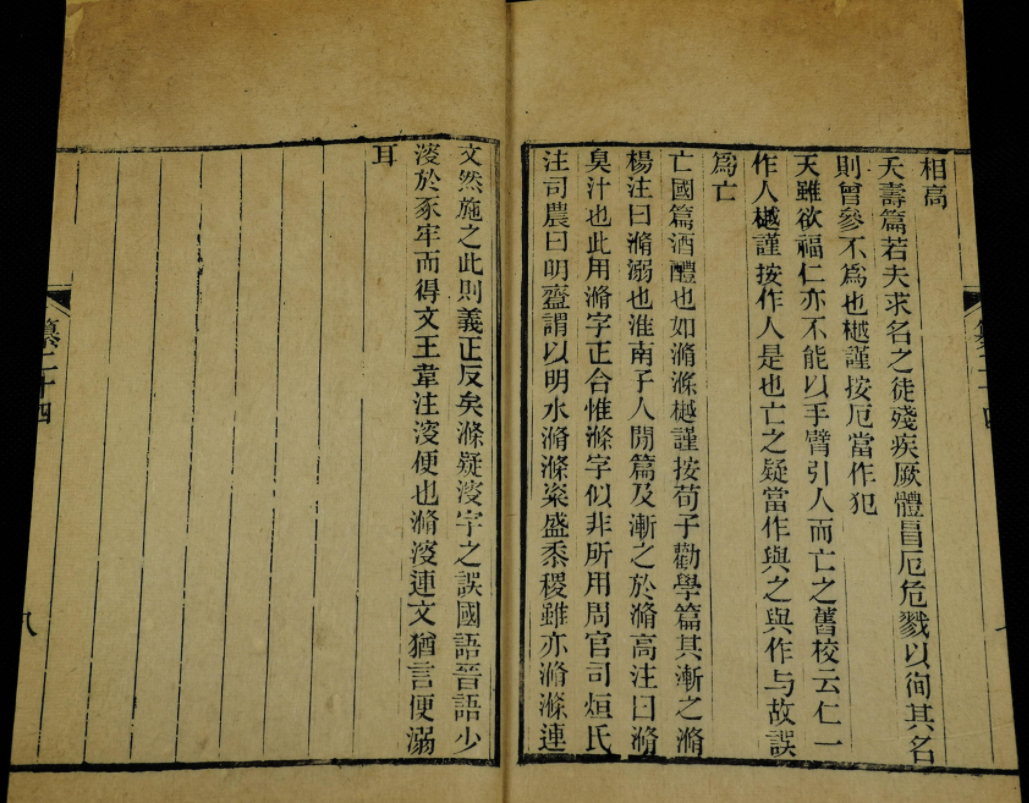 相高
夭壽篇若夫求名之徒殘疾厥體冒厄危戮以徇其名
則曾參不為也樾謹按厄當作犯
天雖欲福仁亦不能以手臂引人而亡之舊校云仁一
作人樾謹按作人是也亡之疑當作與之與作与故誤
爲亡
亡國篇酒醴也如滫滌樾謹按荀子勸學篇其漸之滫
楊注曰滫溺也淮南子人閒篇及漸之於滫高注曰滫
臭汁也此用滫字正合惟滌字似非所用周官司烜氏
注司農曰明齍謂以明水滫滌粢盛黍稷雖亦滫滌連
文然施之此則義正反矣滌疑溲字之誤國語晉語少
溲於豕牢而得文王韋注溲便也滫溲連文猶言便溺
耳
纂二十四
八